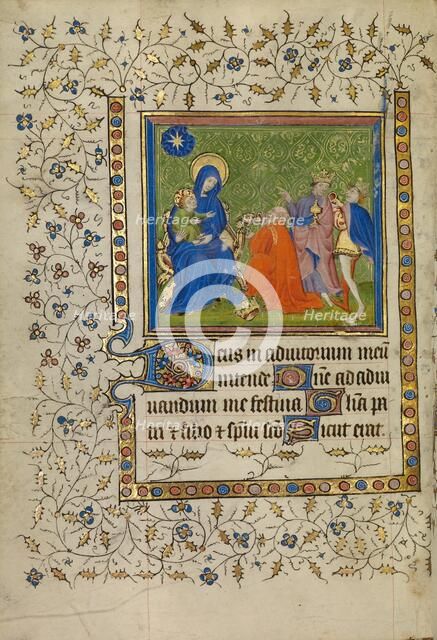 Heritage Heritage
Heritage Heritage
Heritage Heritage
Deus in adiutorium meu
intende Dne ad adiu
uandum me festina Glia pr
tri & filio & spui sco Sicut erat.